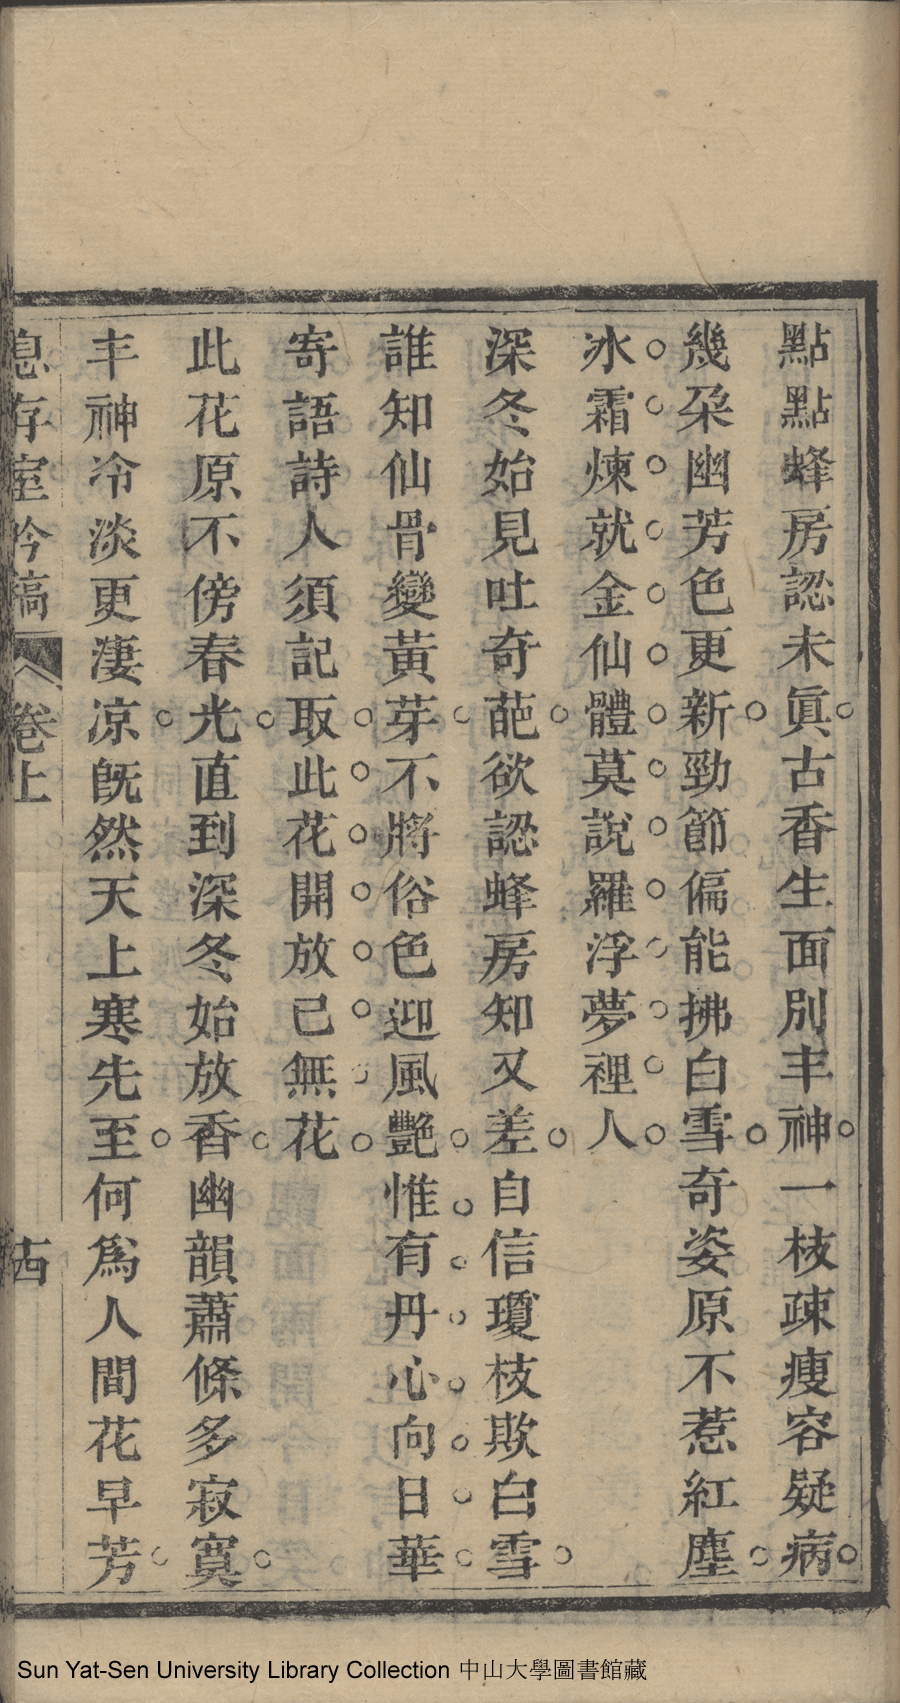 點點蜂房認未眞古香生面別丰神一枝疎瘦容疑病
幾朶幽芳色更新勁節偏能拂白雪奇姿原不惹紅塵
氷霜煉就金仙體莫說羅浮夢裡人
深冬始見吐奇葩欲認蜂房知又差自信瓊枝欺白雪
誰知仙骨變黃芽不將俗色迎風艷惟有丹心向日華
寄語詩人須記取此花開放已無花
此花原不傍春光直到深冬始放香幽韻蕭條多寂寞
丰神冷淡更淒凉旣然天上寒先至何爲人間花早芳
息存室吟稿 卷上 古
Sun Yat-Sen University Library Collection 中山大學圖書館藏